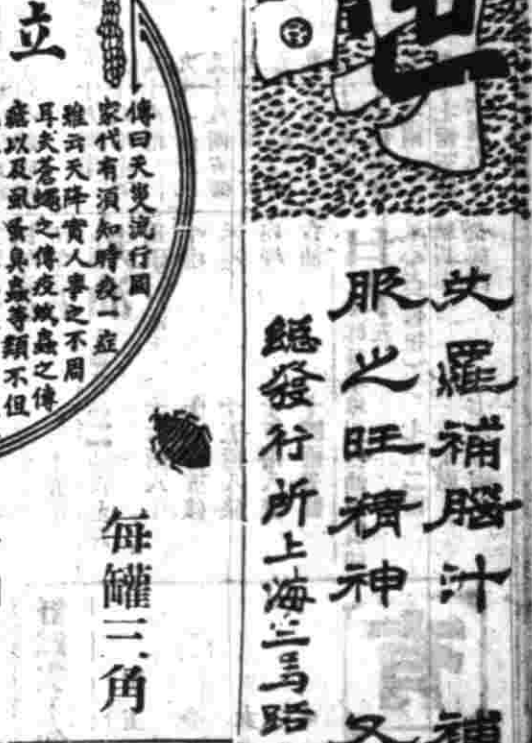 艾羅補腦汁　補
服之旺精神　又
總發行所上海三馬路
立
傳曰天災流行國
家代有須知時疫一症
雖云天降實人事之不周
耳炎蒼蠅之傳疫蚊蟲之傳
以及虱蚤臭蟲等類不但
每罐三角